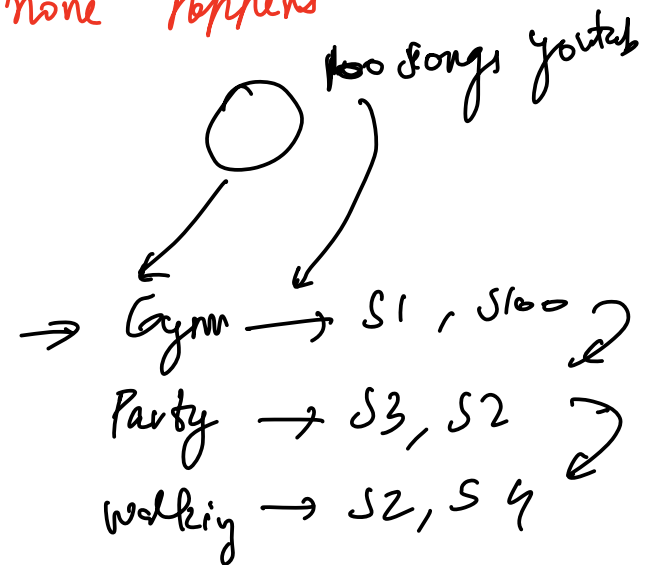 none happens
100 songs youtub
→ Gym → S1, S100
Party → S3, S2
Walking → S2, S4